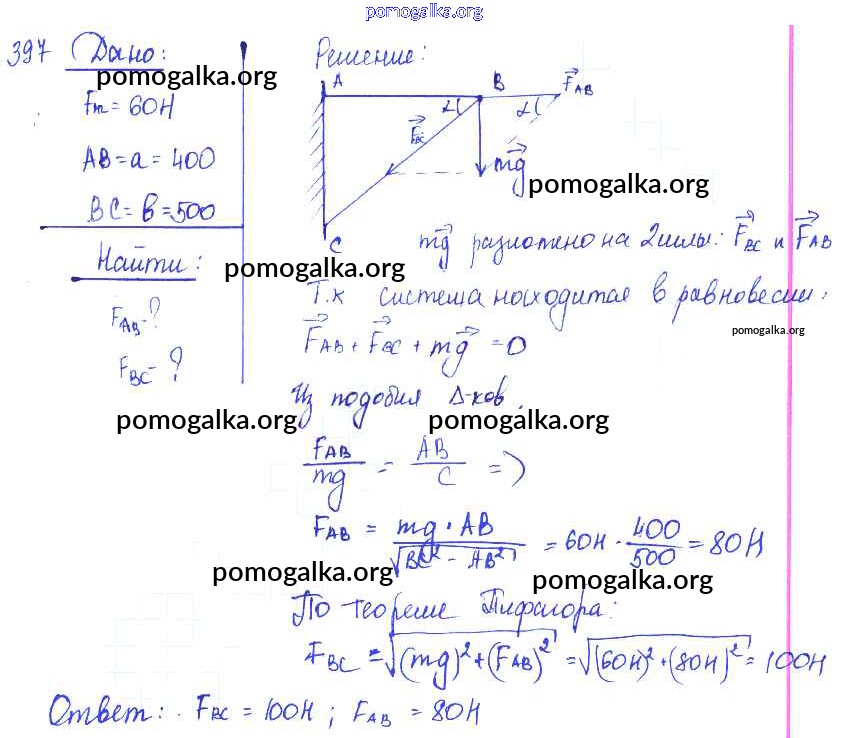 pomogalka.org
397 Дано:
pomogalka.org
Fт = 60Н
AB = a = 400
BC = b = 500
Найти:
F_AB - ?
F_BC - ?
Решение:
A B F_AB
α α
F_BC
mg
pomogalka.org
C
mg разложено на 2 силы: F_BC и F_AB
pomogalka.org
Т.к система находится в равновесии:
pomogalka.org
F_AB + F_BC + mg = 0
Из подобия Δ-ков.
pomogalka.org pomogalka.org
F_AB / mg = AB / C =>
F_AB = mg · AB / √(BC² - AB²) = 60Н · 400 / 500 = 80Н
pomogalka.org pomogalka.org
По теореме Пифагора:
F_BC = √((mg)² + (F_AB)²) = √((60Н)² + (80Н)²) = 100Н
Ответ: F_BC = 100Н ; F_AB = 80Н